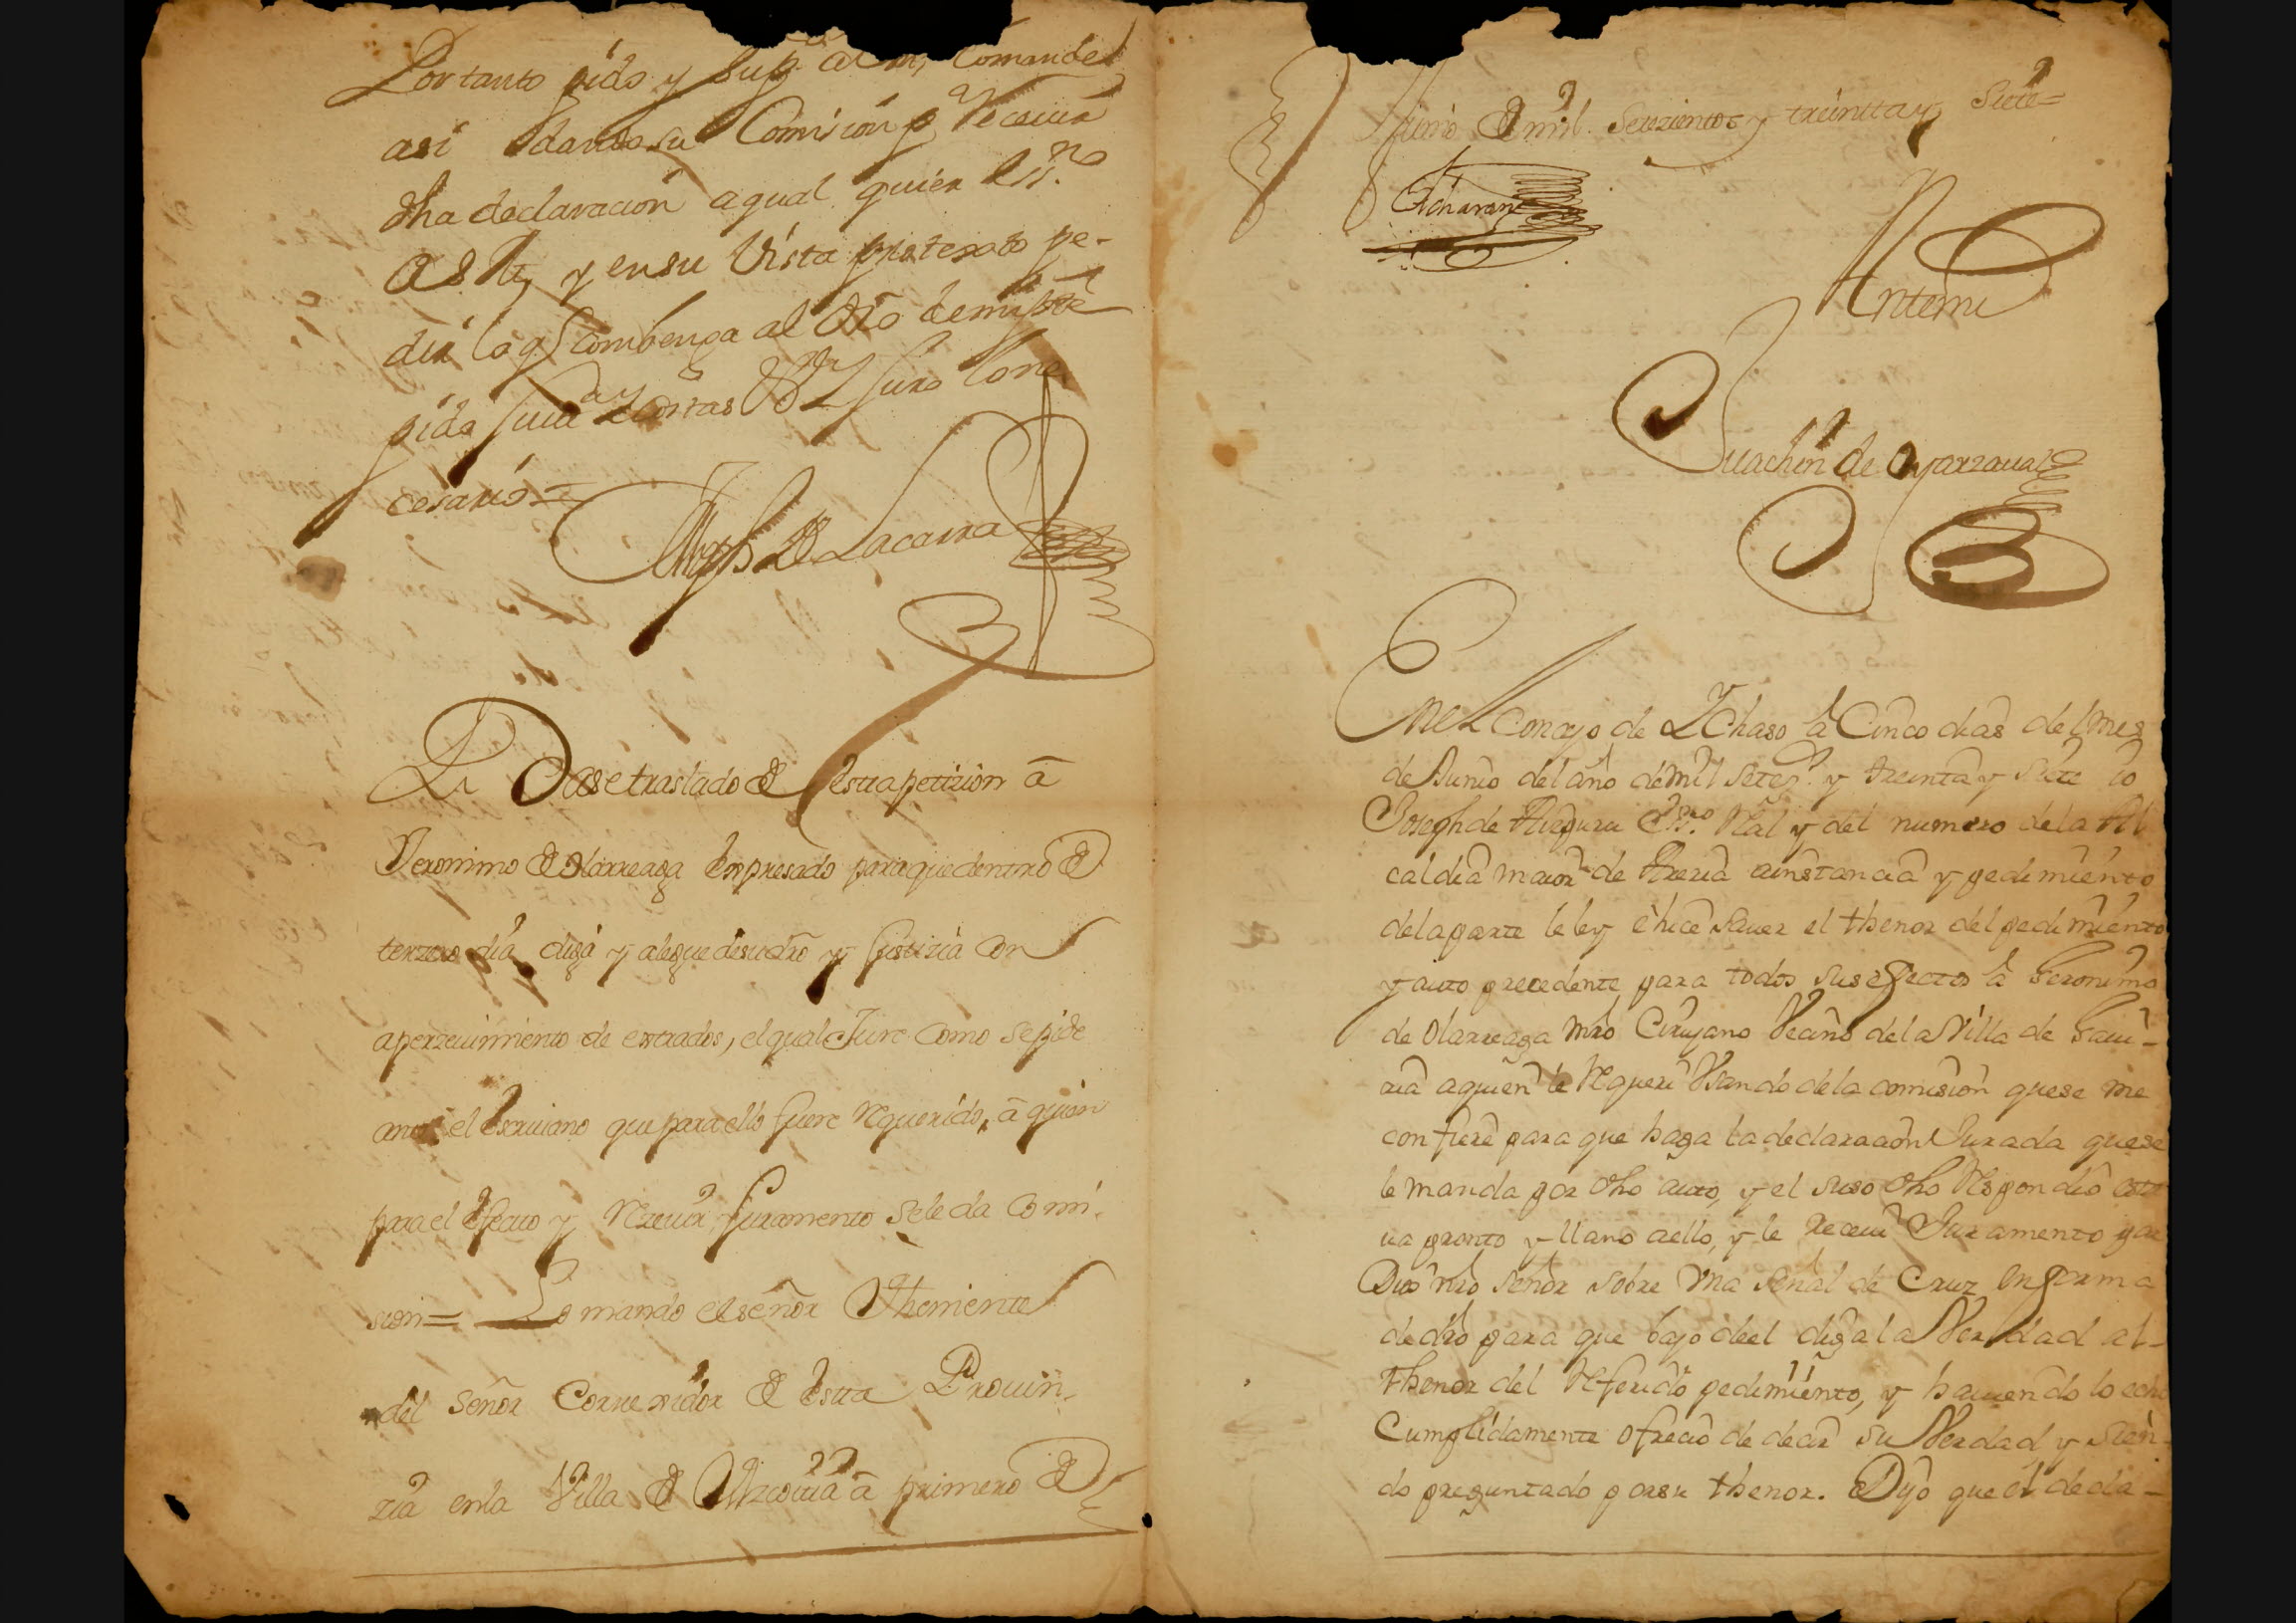 Por tanto pido y sup.co a Vm, lo mande
asi dando su Comision p.a Receuir
dha declaracion a qual quier ess.no
a S Mg, y en su Vista protesto pe-
dir lo q combenga al dro de mi pte
pido Just.a y costas Juro lo ne
cesario =
de Lacarra
Dase traslado de esta petizion â
Jeronimo de Olarreaga Expresado para que dentro de
terzero dia diga y alegue de su dro y Justizia con
aperzeuimiento de estrados, el qual Jure como se pide
ante el escriuano que para ello fuere Requerido, â quien
para el efecto y Rezeuir Juramento se le da Comi-
sion = Lo mando el señor Theniente
del Señor Corregidor de esta Prouin-
zia en la Villa de Azcoitia â primero de
Junio de mil setezientos y treintta y siete =
Antemi
Juachin de Oyarzaual
En el Concejo de Ychaso â Cinco dias del mes
de Junio del año de mil setez.s y treinta y siete io
Joseph de Aregura Ess.no Rãl y del numero de la Al
caldia maior de Areria a instancia y pedimiento
de la parte le ley e hice sauer el thenor del pedimiento
y auto precedente para todos sus efectos â Geronimo
de Olarreaga mro Cirujano Vecino de la Villa de Gaui-
ria a quien le Requeri Vsando de la comision que se me
confiere para que haga la declaracion Jurada que se
le manda por dho auto, y el suso dho Respondio esta
ua pronto y llano a ello, y le receui Juramento por
Dios nro señor sobre Vna señal de Cruz en forma
de dro para que bajo de el diga la Verdad al-
thenor del Referido pedimiento, y hauiendo lo echo
Cumplidamente ofrecio de decir su Verdad y sien-
do preguntado por su thenor. Dijo que el decla-